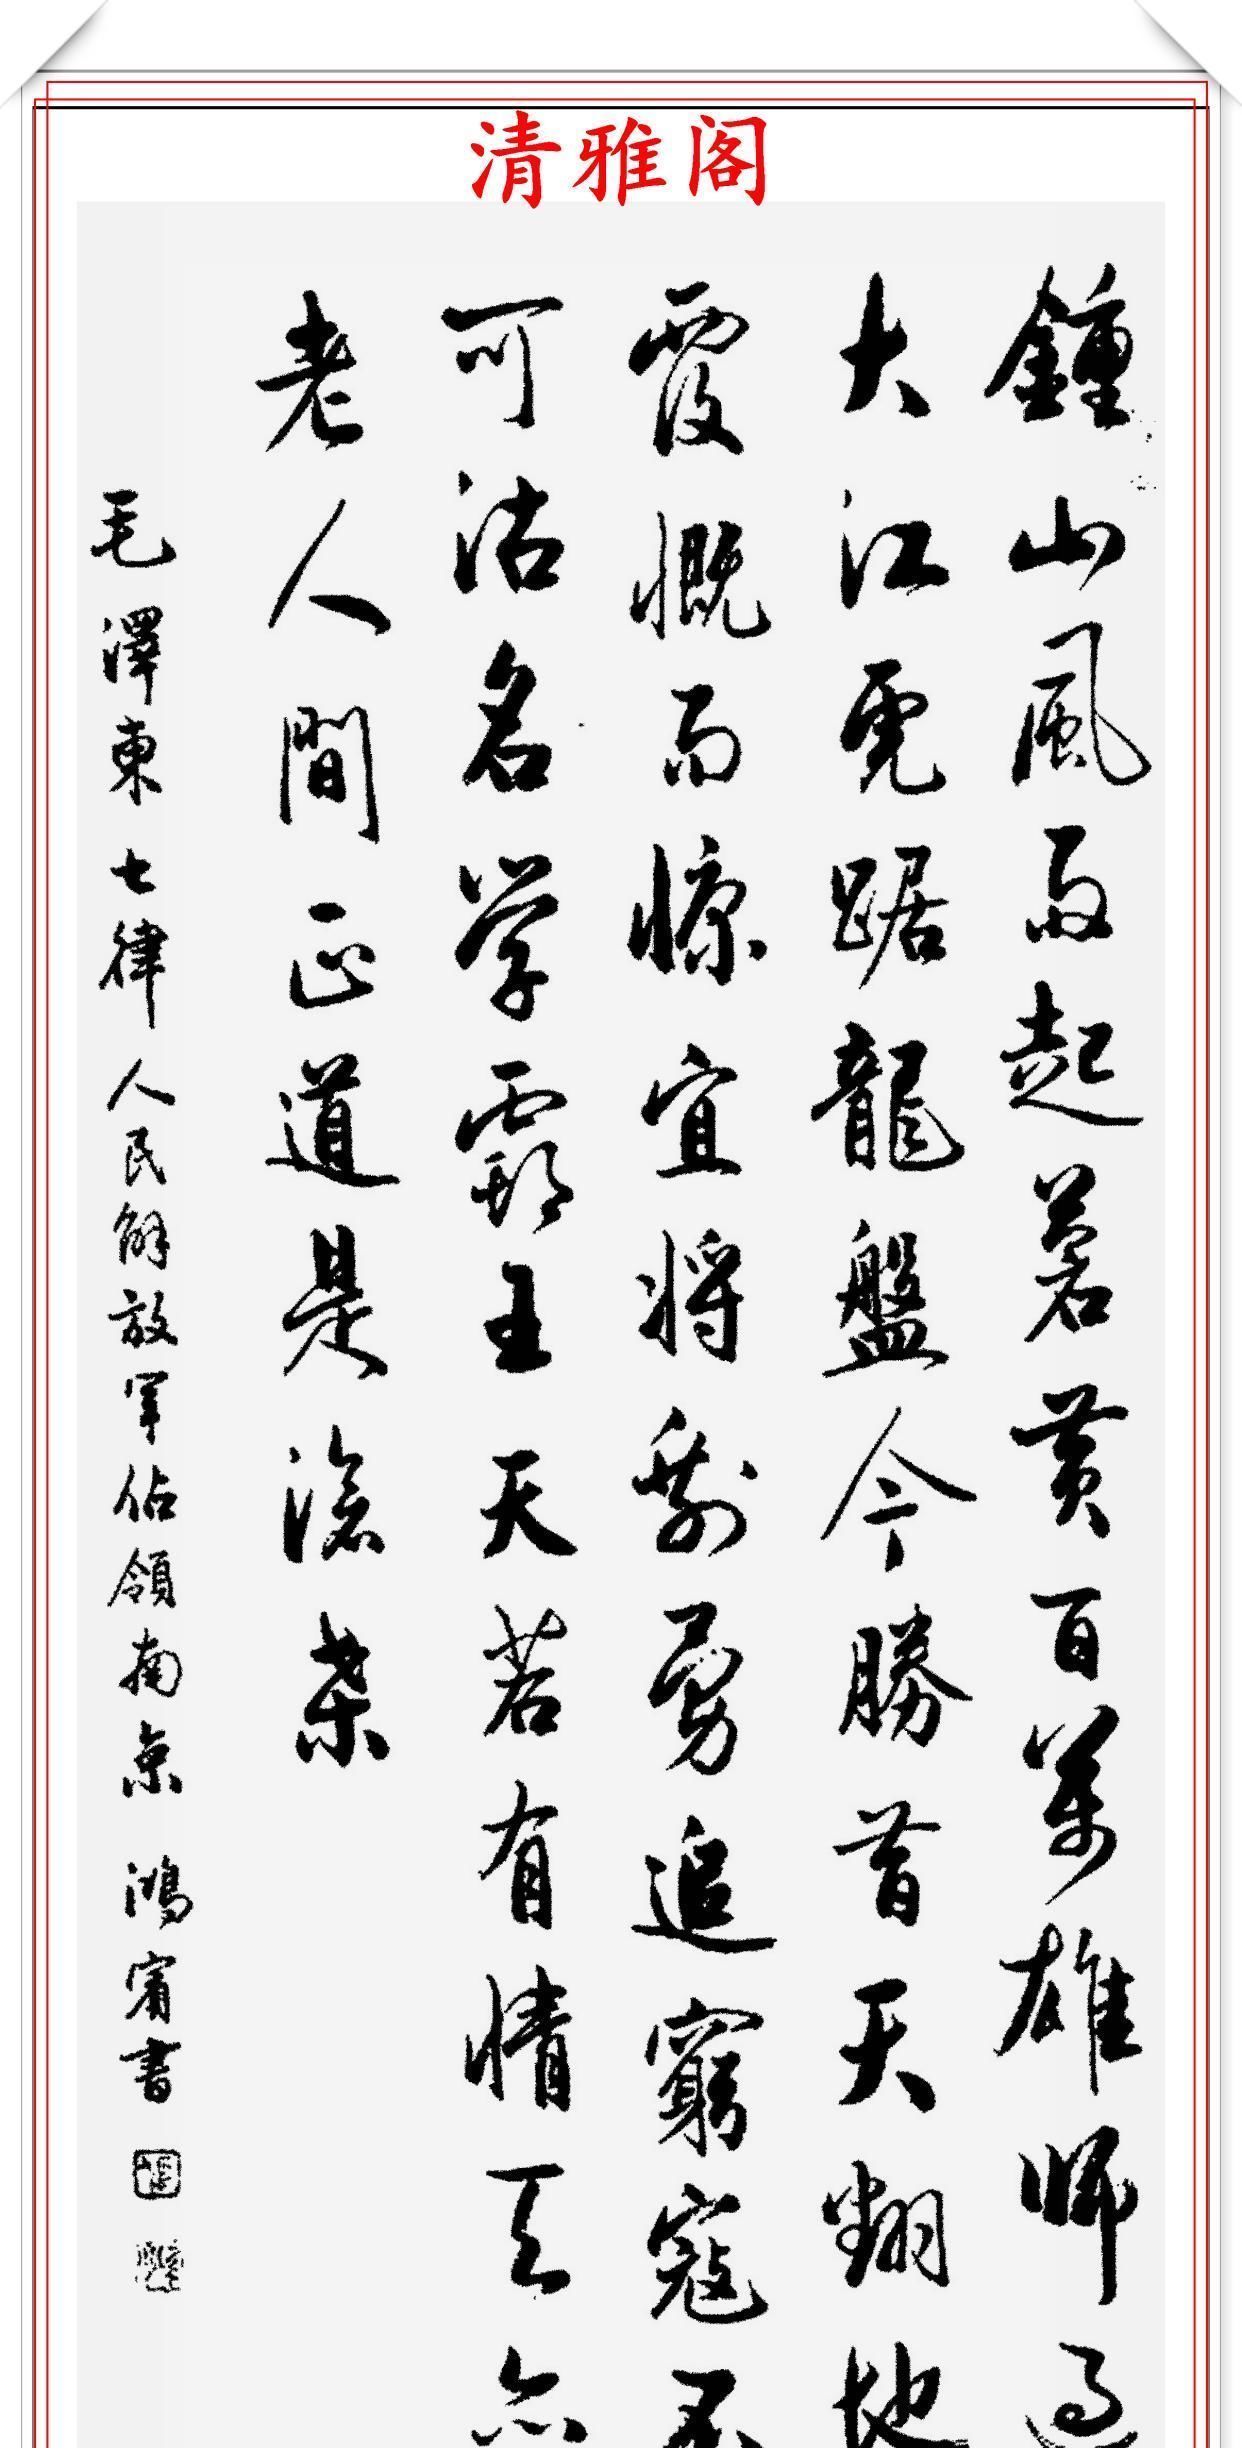 清雅阁
鍾山風雨起蒼黄百萬雄师過
大江虎踞龍盤今勝昔天翻地
覆慨而慷宜將剩勇追窮寇不
可沽名学霸王天若有情天亦
老人間正道是滄桑
毛澤東 七律 人民解放軍佔領南京 鴻賓書